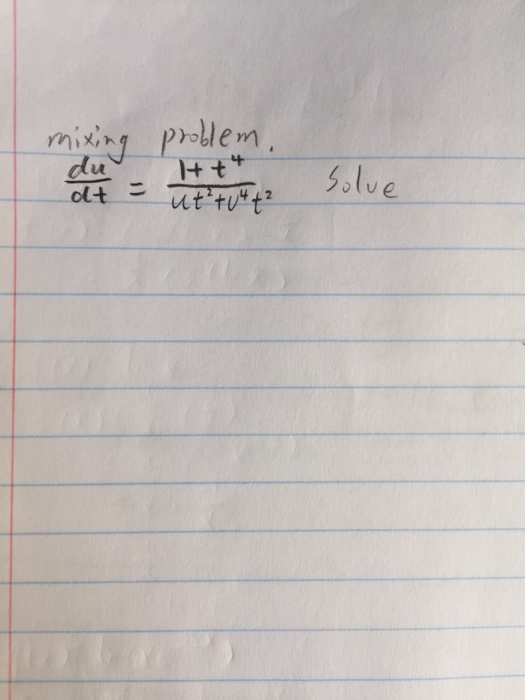 mixing problem.
du/dt = 1+t⁴/ut²+u⁴t² Solve